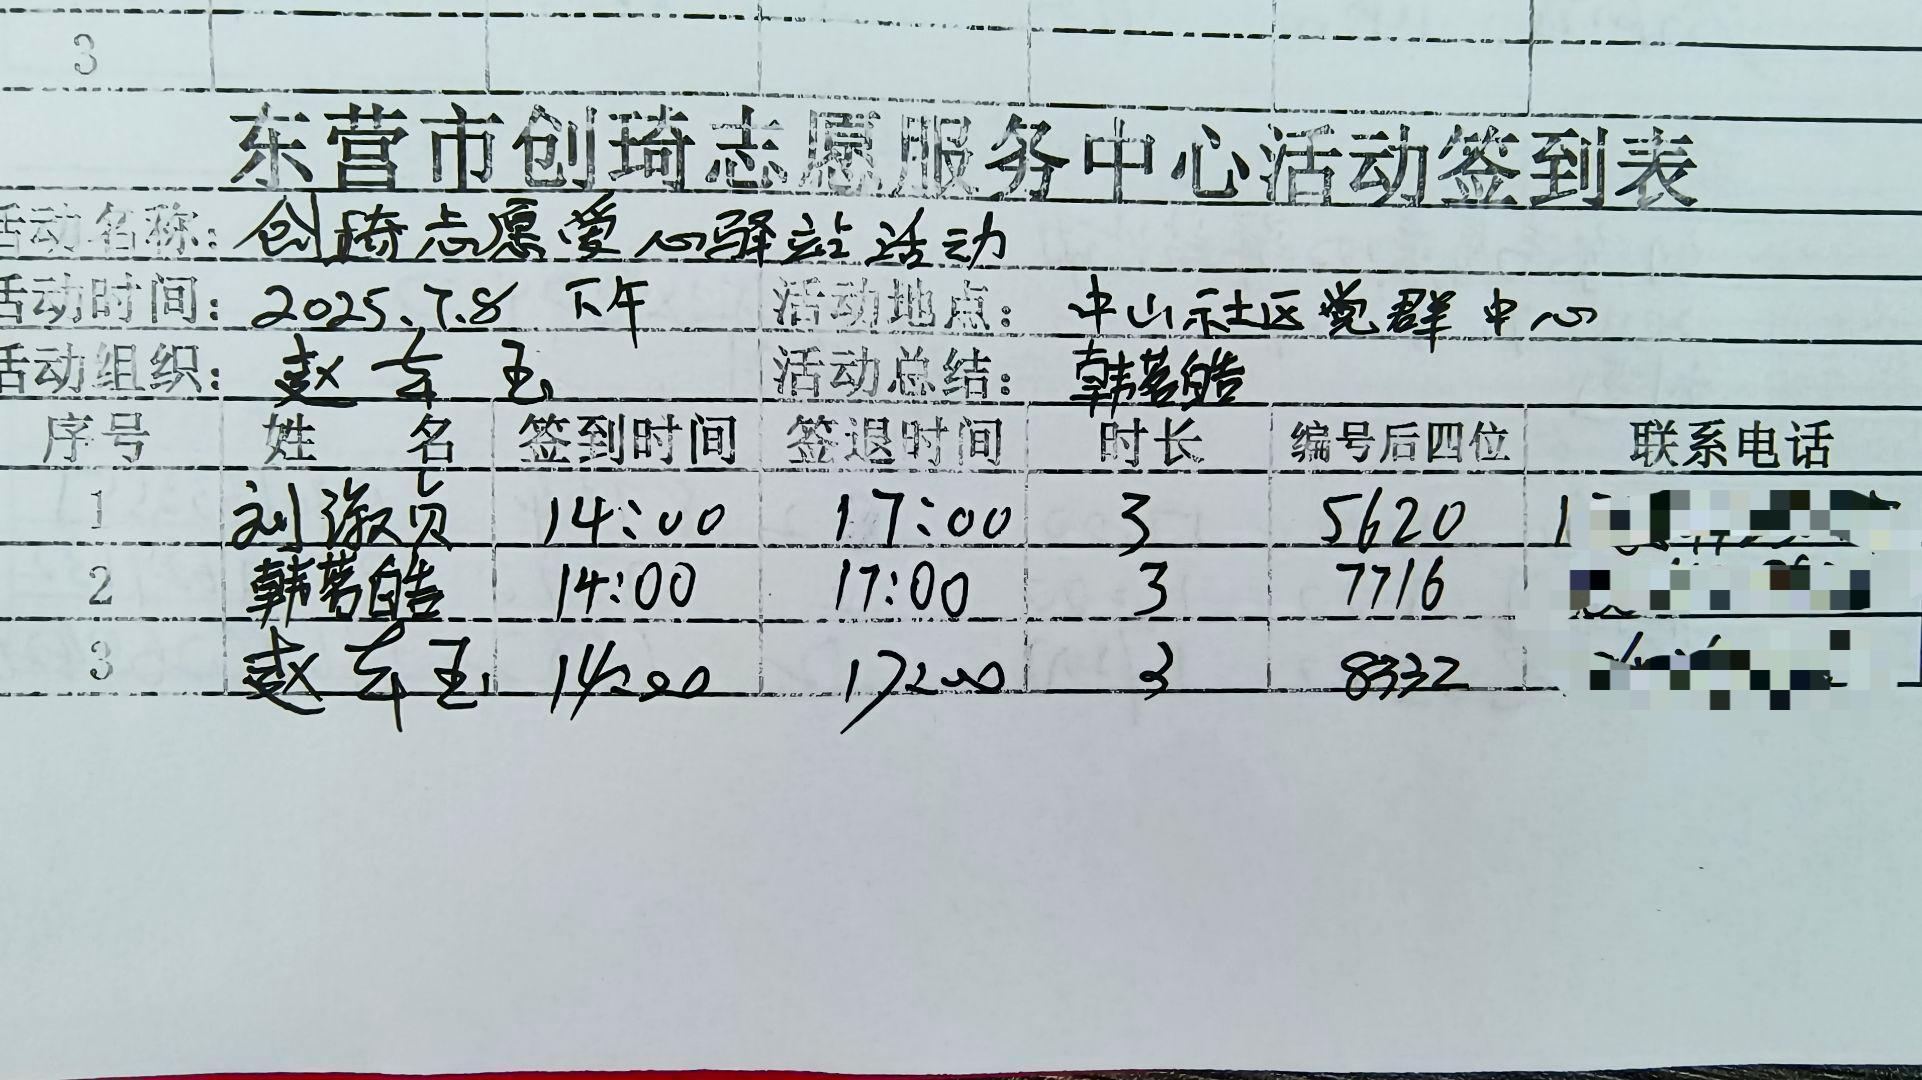 3
东营市创琦志愿服务中心活动签到表
活动名称：创琦志愿爱心驿站活动
活动时间：2025.7.8 下午 活动地点：中山社区党群中心
活动组织：赵东玉 活动总结：韩茗皓
序号 姓名 签到时间 签退时间 时长 编号后四位 联系电话
1 刘淑贞 14:00 17:00 3 5620 1
2 韩茗皓 14:00 17:00 3 7716
3 赵东玉 14:00 17:00 3 8332